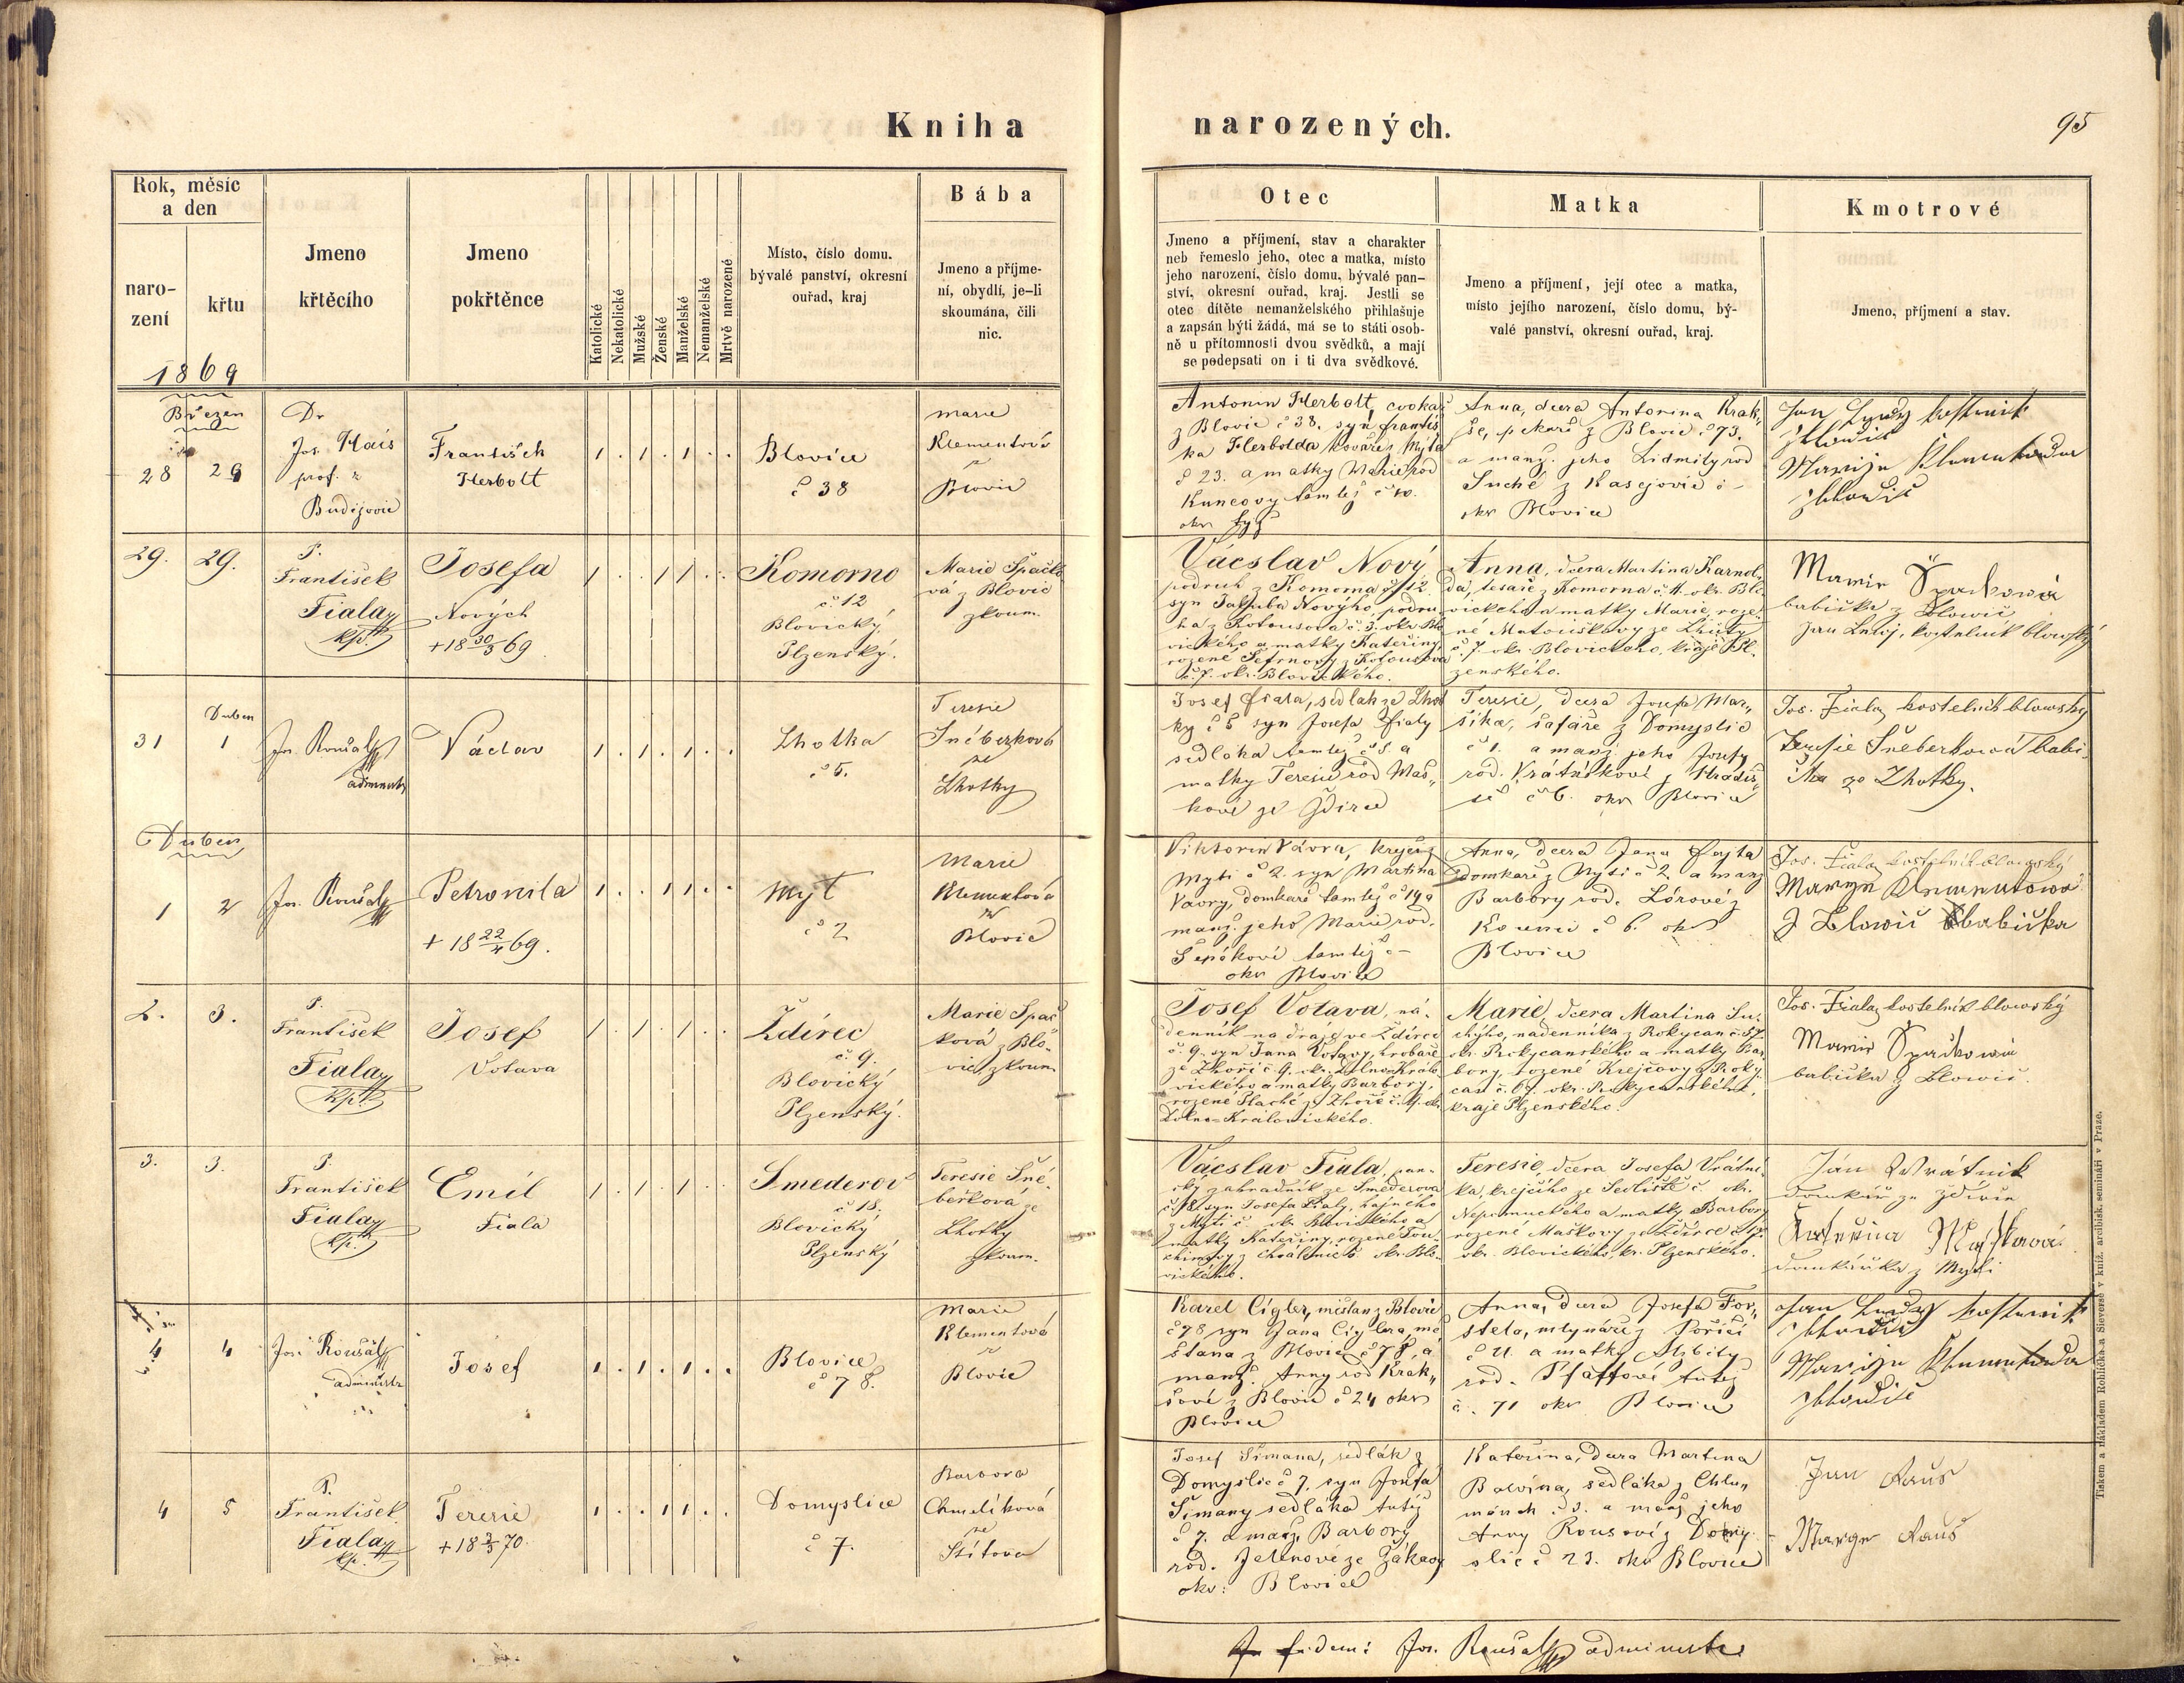 Kniha
narozených.
95
Rok, měsíc
a den
naro-
zení
křtu
Jmeno
křtěcího
Jmeno
pokřtěnce
Katolické
Nekatolické
Mužské
Ženské
Manželské
Nemanželské
Mrtvě narozené
Místo, číslo domu.
bývalé panství, okresní
ouřad, kraj
Bába
Jmeno a příjme-
ní, obydlí, je-li
skoumána, čili
nic.
Otec
Jmeno a příjmení, stav a charakter
neb řemeslo jeho, otec a matka, místo
jeho narození, číslo domu, bývalé pan-
ství, okresní ouřad, kraj. Jestli se
otec dítěte nemanželského přihlašuje
a zapsán býti žádá, má se to státi osob-
ně u přítomnosti dvou svědků, a mají
se podepsati on i ti dva svědkové.
Matka
Jmeno a příjmení, její otec a matka,
místo jejího narození, číslo domu, bý-
valé panství, okresní ouřad, kraj.
Kmotrové
Jmeno, příjmení a stav.
1869
Březen
28
29
Dr
Jos. Hais
prof. z
Budějovic
František
Herbolt
Blovice
č 38
Marie
Klementová
z
Blovic
Antonin Herbolt, cvokař
z Blovic č 38. syn Františ
ka Herbolda kováře z Mýta
č 23. a matky Marie rod
Kuncovy tamtéž č 10.
okr
Anna, dcera Antonina Krak„
še, pekaře z Blovic č 73.
a manž. jeho Lidmily rod
Suché z Kasejovic č –
okr Blovice
Jan kostelnik
z Blowic
Mariya Klementowa
z Blowic
29.
29.
P.
František
Fiala
kp.
Josefa
Nových
+ 18 30/3 69
Komorno
č. 12
Blovický,
Plzenský.
Marie Špačko
vá z Blovic
zkoum.
Václav Nový
podruh z Komorna č. 12
syn Jakuba Nového, podru
ha z Kotousova č. 3. okr. Blo
vického a matky Kateřiny,
rozené Šetrnovy z Kotousova
č. 7. okr. Blovického.
Anna, dcera Martina Karnol
da, tesaře z Komorna č. 11. okr. Blo
vického a matky Marie, roze
né Matouškovy ze Lhůty
č. 7. okr. Blovického, kraje Pl.
zenského.
Marie Špačkowá
babička z Blowic
Jan, kostelník blowský
31
Duben
1
Jos. Roušal
administr
Václav
Lhotka
č 5.
Teresie
Sněberkova
ze
Lhotky
Josef Fiala, sedlák ze Lhot
ky č 5 syn Josefa Fialy
sedláka tamtéž č 5. a
matky Teresie rod Maš„
kové ze Ždirce
Teresie, dcera Josefa Mar„
šíka, šafáře z Domyslic
č 1. a manž. jeho Josefy
rod. Vrátníkové z Hradiš„
tě č 6. okr Blovice
Jos. Fiala kostelník blowský
Teresie Šneberkowá babi
čka ze Lhotky.
Duben
1
2
Jos. Roušal
Petronila
+ 18 22/4 69.
Myt
č 2
Marie
Klementová
z
Blovic
Viktorin Vávra, krejčí z
Myti č 2. syn Martina
Vávry, domkaře tamtéž č 19 a
manž. jeho Marie rod.
tamtéž č –
okr Blovice
Anna, dcera Jana Fajta
domkaře z Myti č 2 a manž
Barbory rod. Lórové z
č 6. okr
Blovice
Jos. Fiala kostelník blowský
Marya Klementowa
z Blowic babička
2.
3.
P.
František
Fiala
kp.
Josef
Votava
Ždírec
č. 9.
Blovický
Plzenský.
Marie Špač
ková z Blo„
vic, zkoum
Josef Votava, ná.
denník na dráze ve Ždírci
č. 9. syn Jana Votavy, hrobaře
ze Zhoře č. 9. okr. Dolno-Králo
vického a matky Barbory,
rozené Plaché z Zhoře č. 4. okr.
Dolno-Královického.
Marie, dcera Martina Su.
chýho, nádenníka z Rokycan č. 57
okr. Rokycanského a matky Bar
bory, rozené Krejčovy z Roky
can č. 67. okr. Rokycanského,
kraje Plzenského.
Jos. Fiala kostelník blowský
Marie Špačkowá
babička z Blowic.
3.
3.
P.
František
Fiala
kp.
Emil
Fiala
Smederov
č 18.
Blovický
Plzenský
Teresie Šně.
berková ze
Lhotky
zkoum.
Václav Fiala, pan.
ský zahradník ze Smederova
č. 18. syn Josefa Fialy, hajného
z Myti č okr. Blovického a
matky Kateřiny, rozené Tou.
okr. Blo.
vického.
Teresie, dcera Josefa Vrátní
ka, krejčího ze Sedliště č okr.
Nepomuckého a matky Barbory
rozené Maškovy ze Ždírce č 17.
okr. Blovického, kr. Plzenského.
Ján Wrátnik
domkář ze Ždírce
Kateřina Mašková
domkářka z Myti
4
4
Jos. Roušal
administr
Josef
Blovice
č 78.
Marie
Klementová
z
Blovic
Karel Cígler, mištan z Blovic
č 78 syn Jana Cíglera, mě
štana z Blovic č 78, a
manž. Anny rod Krak„
šové z Blovic č 24 okr
Blovice
Anna, dcera Josefa For„
stela, mlynáře z Poříčí
č 21. a matky Alžběty
rod. Pfaffové tutéž
č. 71 okr Blovice
Jan kostelnik
z Blowic
Mariya Klementowa
z Blowic
4
5
P.
František
Fiala
kp.
Teresie
+ 18 3/3 70.
Domyslice
č 7.
Barbora
Chmelíková
ze
Štítova
Josef Šimana, sedlák z
Domyslic č 7, syn Josefa
Šimany sedláka tutéž
č 7. a manž. Barbory
rod. Jelínové ze Zákavy
okr: Blovice
Kateřina, dcera Martina
sedláka z Chlu„
mánek č 3. a manž jeho
Anny Rousové z Domy
slic č 23. okr Blovice
Jan Rauš
Marye Rauš
fidem: Jos. Roušal administr.
Tiskem a nákladem Rohlíčka a Sieverse v kníž. arcibisk. semináři v Praze.